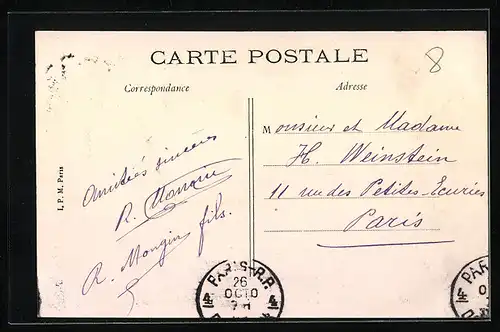 CARTE POSTALE
8
Correspondance
Adresse
Amitiés sincères
R. Mongin
R. Mongin fils.
Monsieur et Madame
H. Weinstein
11 rue des Petites-Écuries
Paris
I. P. M. Paris
PARIS-R.P.
26
4 OCTO 4
7 H
PAR
4 O